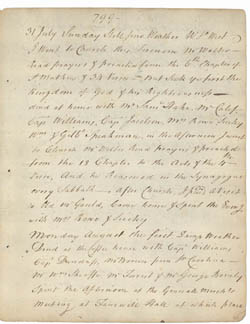 799
31 July Sunday Still fine Weather Wd West
I Went to Church this forenoon Mr Walter
read prayers & preached from the 6th Chapter of
St Mathew & 33 Verse — But Seek ye first the
Kingdom of God & his Righteousness —
dined at home with Mr
Capt Williams, Capt Jacobson, Mrs Rowe Suckey
& Speakman, in the Afternoon I went
to Church Mr read prayers & preached
from the 18 Chapter to the Acts of the 4th
Verse, And he Reasoned in the Synagogue
every Sabbath — after Church I paid a visit
to Mr Gould, Came home & Spent the Evening
with Mrs Rowe & Suckey
Monday August the first Fair Weather
Dined at the Coffee house with Capt Williams,
Capt Mr from So Carolina —
Mr Mr Sweet & Mr George
Spent the Afternoon at the General
Meeting at Faneuil Hall at which place